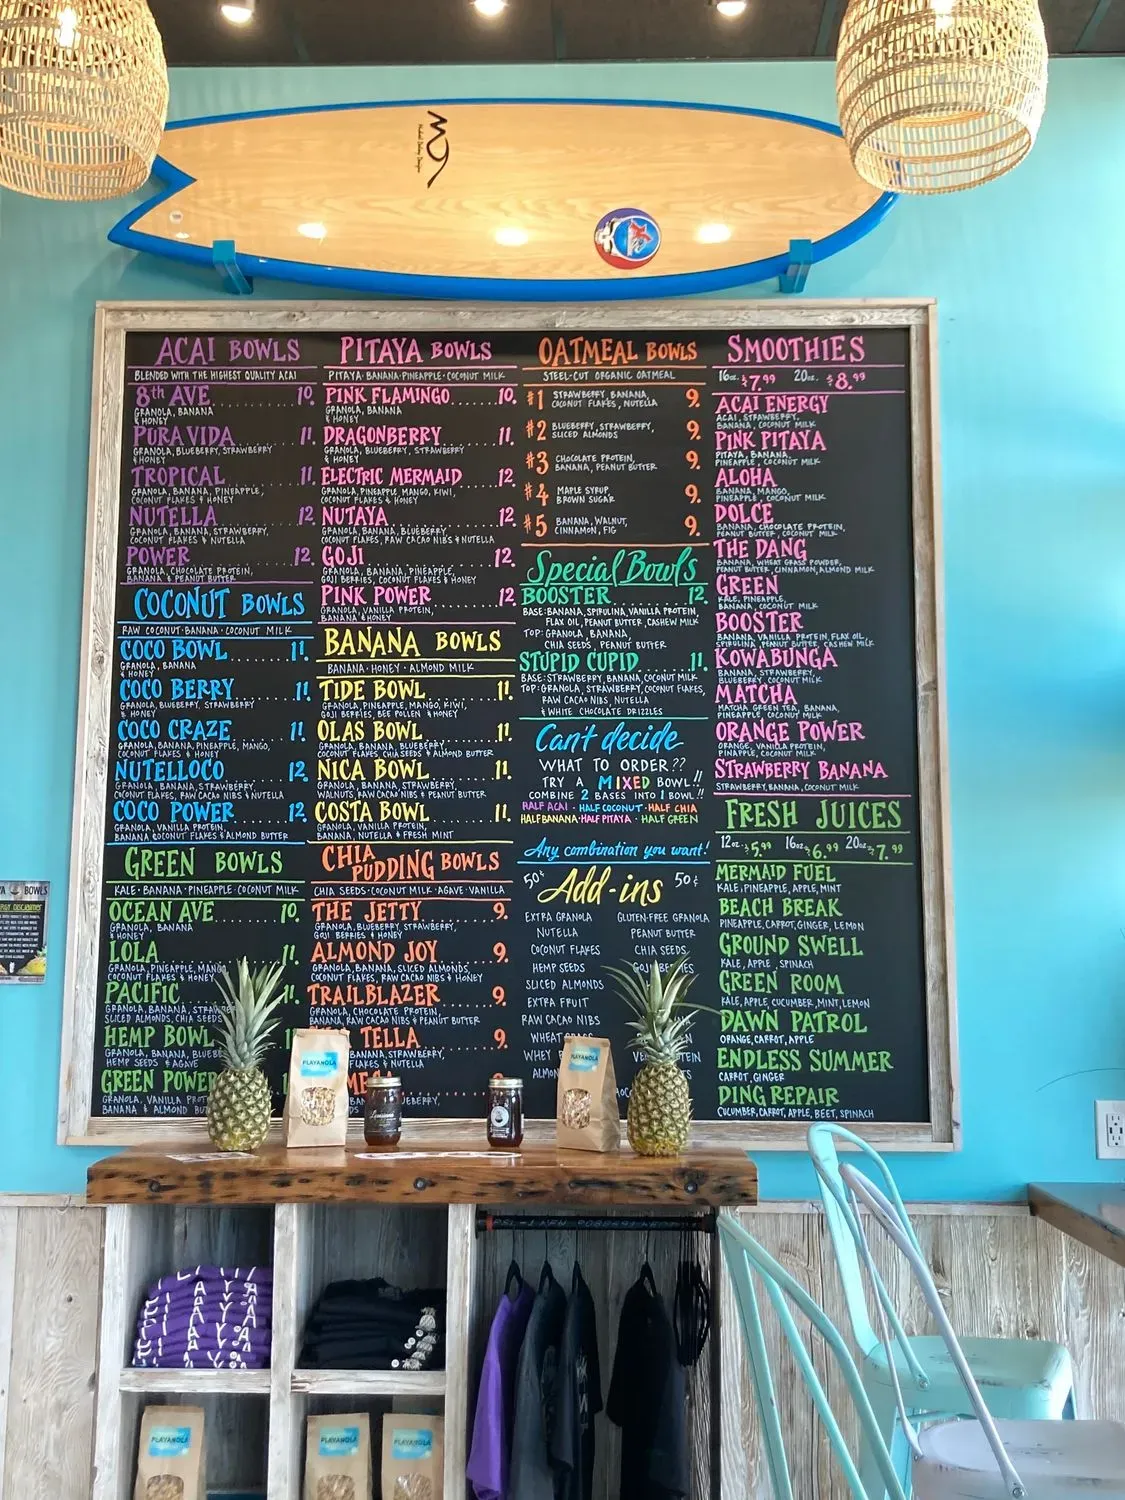 ACAI BOWLS
BLENDED WITH THE HIGHEST QUALITY ACAI
8th AVE 10.
GRANOLA, BANANA
& HONEY
PURA VIDA 11.
GRANOLA, BLUEBERRY, STRAWBERRY
& HONEY
TROPICAL 11.
GRANOLA, BANANA, PINEAPPLE,
COCONUT FLAKES & HONEY
NUTELLA 12.
GRANOLA, BANANA, STRAWBERRY,
COCONUT FLAKES & NUTELLA
POWER 12.
GRANOLA, CHOCOLATE PROTEIN,
BANANA & PEANUT BUTTER
COCONUT BOWLS
RAW COCONUT · BANANA · COCONUT MILK
COCO BOWL 11.
GRANOLA, BANANA
& HONEY
COCO BERRY 11.
GRANOLA, BLUEBERRY, STRAWBERRY
& HONEY
COCO CRAZE 11.
GRANOLA, BANANA, PINEAPPLE, MANGO,
COCONUT FLAKES & HONEY
NUTELLOCO 12.
GRANOLA, BANANA, STRAWBERRY,
COCONUT FLAKES, RAW CACAO NIBS & NUTELLA
COCO POWER 12.
GRANOLA, VANILLA PROTEIN,
BANANA, COCONUT FLAKES & ALMOND BUTTER
GREEN BOWLS
KALE · BANANA · PINEAPPLE · COCONUT MILK
OCEAN AVE 10.
GRANOLA, BANANA
& HONEY
LOLA 11.
GRANOLA, PINEAPPLE, MANGO
COCONUT FLAKES & HONEY
PACIFIC 11.
GRANOLA, BANANA,
SLICED ALMONDS, CHIA SEEDS
HEMP BOWL
GRANOLA, BANANA,
HEMP SEEDS & AGAVE
GREEN POWER
GRANOLA, VANILLA
BANANA & ALMOND
PITAYA BOWLS
PITAYA · BANANA · PINEAPPLE · COCONUT MILK
PINK FLAMINGO 10.
GRANOLA, BANANA
& HONEY
DRAGONBERRY 11.
GRANOLA, BLUEBERRY, STRAWBERRY
& HONEY
ELECTRIC MERMAID 12.
GRANOLA, PINEAPPLE, MANGO, KIWI,
COCONUT FLAKES & HONEY
NUTAYA 12.
GRANOLA, BANANA, BLUEBERRY,
COCONUT FLAKES, RAW CACAO NIBS & NUTELLA
GOJI 12.
GRANOLA, BANANA, PINEAPPLE,
GOJI BERRIES, COCONUT FLAKES & HONEY
PINK POWER 12.
GRANOLA, VANILLA PROTEIN,
BANANA & HONEY
BANANA BOWLS
BANANA · HONEY · ALMOND MILK
TIDE BOWL 11.
GRANOLA, PINEAPPLE, MANGO, KIWI,
GOJI BERRIES, BEE POLLEN & HONEY
OLAS BOWL 11.
GRANOLA, BANANA, BLUEBERRY,
COCONUT FLAKES, CHIA SEEDS & ALMOND BUTTER
NICA BOWL 11.
GRANOLA, BANANA, STRAWBERRY,
WALNUTS, RAW CACAO NIBS & PEANUT BUTTER
COSTA BOWL 11.
GRANOLA, VANILLA PROTEIN,
BANANA, NUTELLA & FRESH MINT
CHIA PUDDING BOWLS
CHIA SEEDS · COCONUT MILK · AGAVE · VANILLA
THE JETTY 9.
GRANOLA, BLUEBERRY, STRAWBERRY,
GOJI BERRIES & HONEY
ALMOND JOY 9.
GRANOLA, BANANA, SLICED ALMONDS,
COCONUT FLAKES, RAW CACAO NIBS & HONEY
TRAILBLAZER 9.
GRANOLA, CHOCOLATE PROTEIN,
BANANA, RAW CACAO NIBS & PEANUT BUTTER
TELLA 9.
BANANA, STRAWBERRY,
FLAKES & NUTELLA
9.
OATMEAL BOWLS
STEEL-CUT ORGANIC OATMEAL
#1 STRAWBERRY, BANANA, 9.
COCONUT FLAKES, NUTELLA
#2 BLUEBERRY, STRAWBERRY, 9.
SLICED ALMONDS
#3 CHOCOLATE PROTEIN, 9.
BANANA, PEANUT BUTTER
#4 MAPLE SYRUP 9.
BROWN SUGAR
#5 BANANA, WALNUT, 9.
CINNAMON, FIG
Special Bowls
BOOSTER 12.
BASE: BANANA, SPIRULINA, VANILLA PROTEIN,
FLAX OIL, PEANUT BUTTER, CASHEW MILK
TOP: GRANOLA, BANANA,
CHIA SEEDS, PEANUT BUTTER
STUPID CUPID 11.
BASE: STRAWBERRY, BANANA, COCONUT MILK
TOP: GRANOLA, STRAWBERRY, COCONUT FLAKES,
RAW CACAO NIBS, NUTELLA
& WHITE CHOCOLATE DRIZZLES
Can't decide
WHAT TO ORDER??
TRY A MIXED BOWL!!
COMBINE 2 BASES INTO 1 BOWL!!
HALF ACAI · HALF COCONUT · HALF CHIA
HALF BANANA · HALF PITAYA · HALF GREEN
Any combination you want!
50¢ Add-ins 50¢
EXTRA GRANOLA GLUTEN-FREE GRANOLA
NUTELLA PEANUT BUTTER
COCONUT FLAKES CHIA SEEDS
HEMP SEEDS GOJI BERRIES
SLICED ALMONDS
EXTRA FRUIT
RAW CACAO NIBS
WHEAT GRASS
WHEY
SMOOTHIES
16oz. $7.99 20oz. $8.99
ACAI ENERGY
ACAI, STRAWBERRY,
BANANA, COCONUT MILK
PINK PITAYA
PITAYA, BANANA,
PINEAPPLE, COCONUT MILK
ALOHA
BANANA, MANGO,
PINEAPPLE, COCONUT MILK
DOLCE
BANANA, CHOCOLATE PROTEIN,
PEANUT BUTTER, COCONUT MILK
THE DANG
BANANA, WHEAT GRASS POWDER,
PEANUT BUTTER, CINNAMON, ALMOND MILK
GREEN
KALE, PINEAPPLE,
BANANA, COCONUT MILK
BOOSTER
BANANA, VANILLA PROTEIN, FLAX OIL,
SPIRULINA, PEANUT BUTTER, CASHEW MILK
KOWABUNGA
BANANA, STRAWBERRY,
BLUEBERRY, COCONUT MILK
MATCHA
MATCHA GREEN TEA, BANANA,
PINEAPPLE, COCONUT MILK
ORANGE POWER
ORANGE, VANILLA PROTEIN,
PINEAPPLE, COCONUT MILK
STRAWBERRY BANANA
STRAWBERRY, BANANA, COCONUT MILK
FRESH JUICES
12oz. $5.99 16oz. $6.99 20oz. $7.99
MERMAID FUEL
KALE, PINEAPPLE, APPLE, MINT
BEACH BREAK
PINEAPPLE, CARROT, GINGER, LEMON
GROUND SWELL
KALE, APPLE, SPINACH
GREEN ROOM
KALE, APPLE, CUCUMBER, MINT, LEMON
DAWN PATROL
ORANGE, CARROT, APPLE
ENDLESS SUMMER
CARROT, GINGER
DING REPAIR
CUCUMBER, CARROT, APPLE, BEET, SPINACH
BOWLS
PLAYANOLA
PLAYANOLA
PLAYANOLA
PLAYANOLA
PLAYANOLA